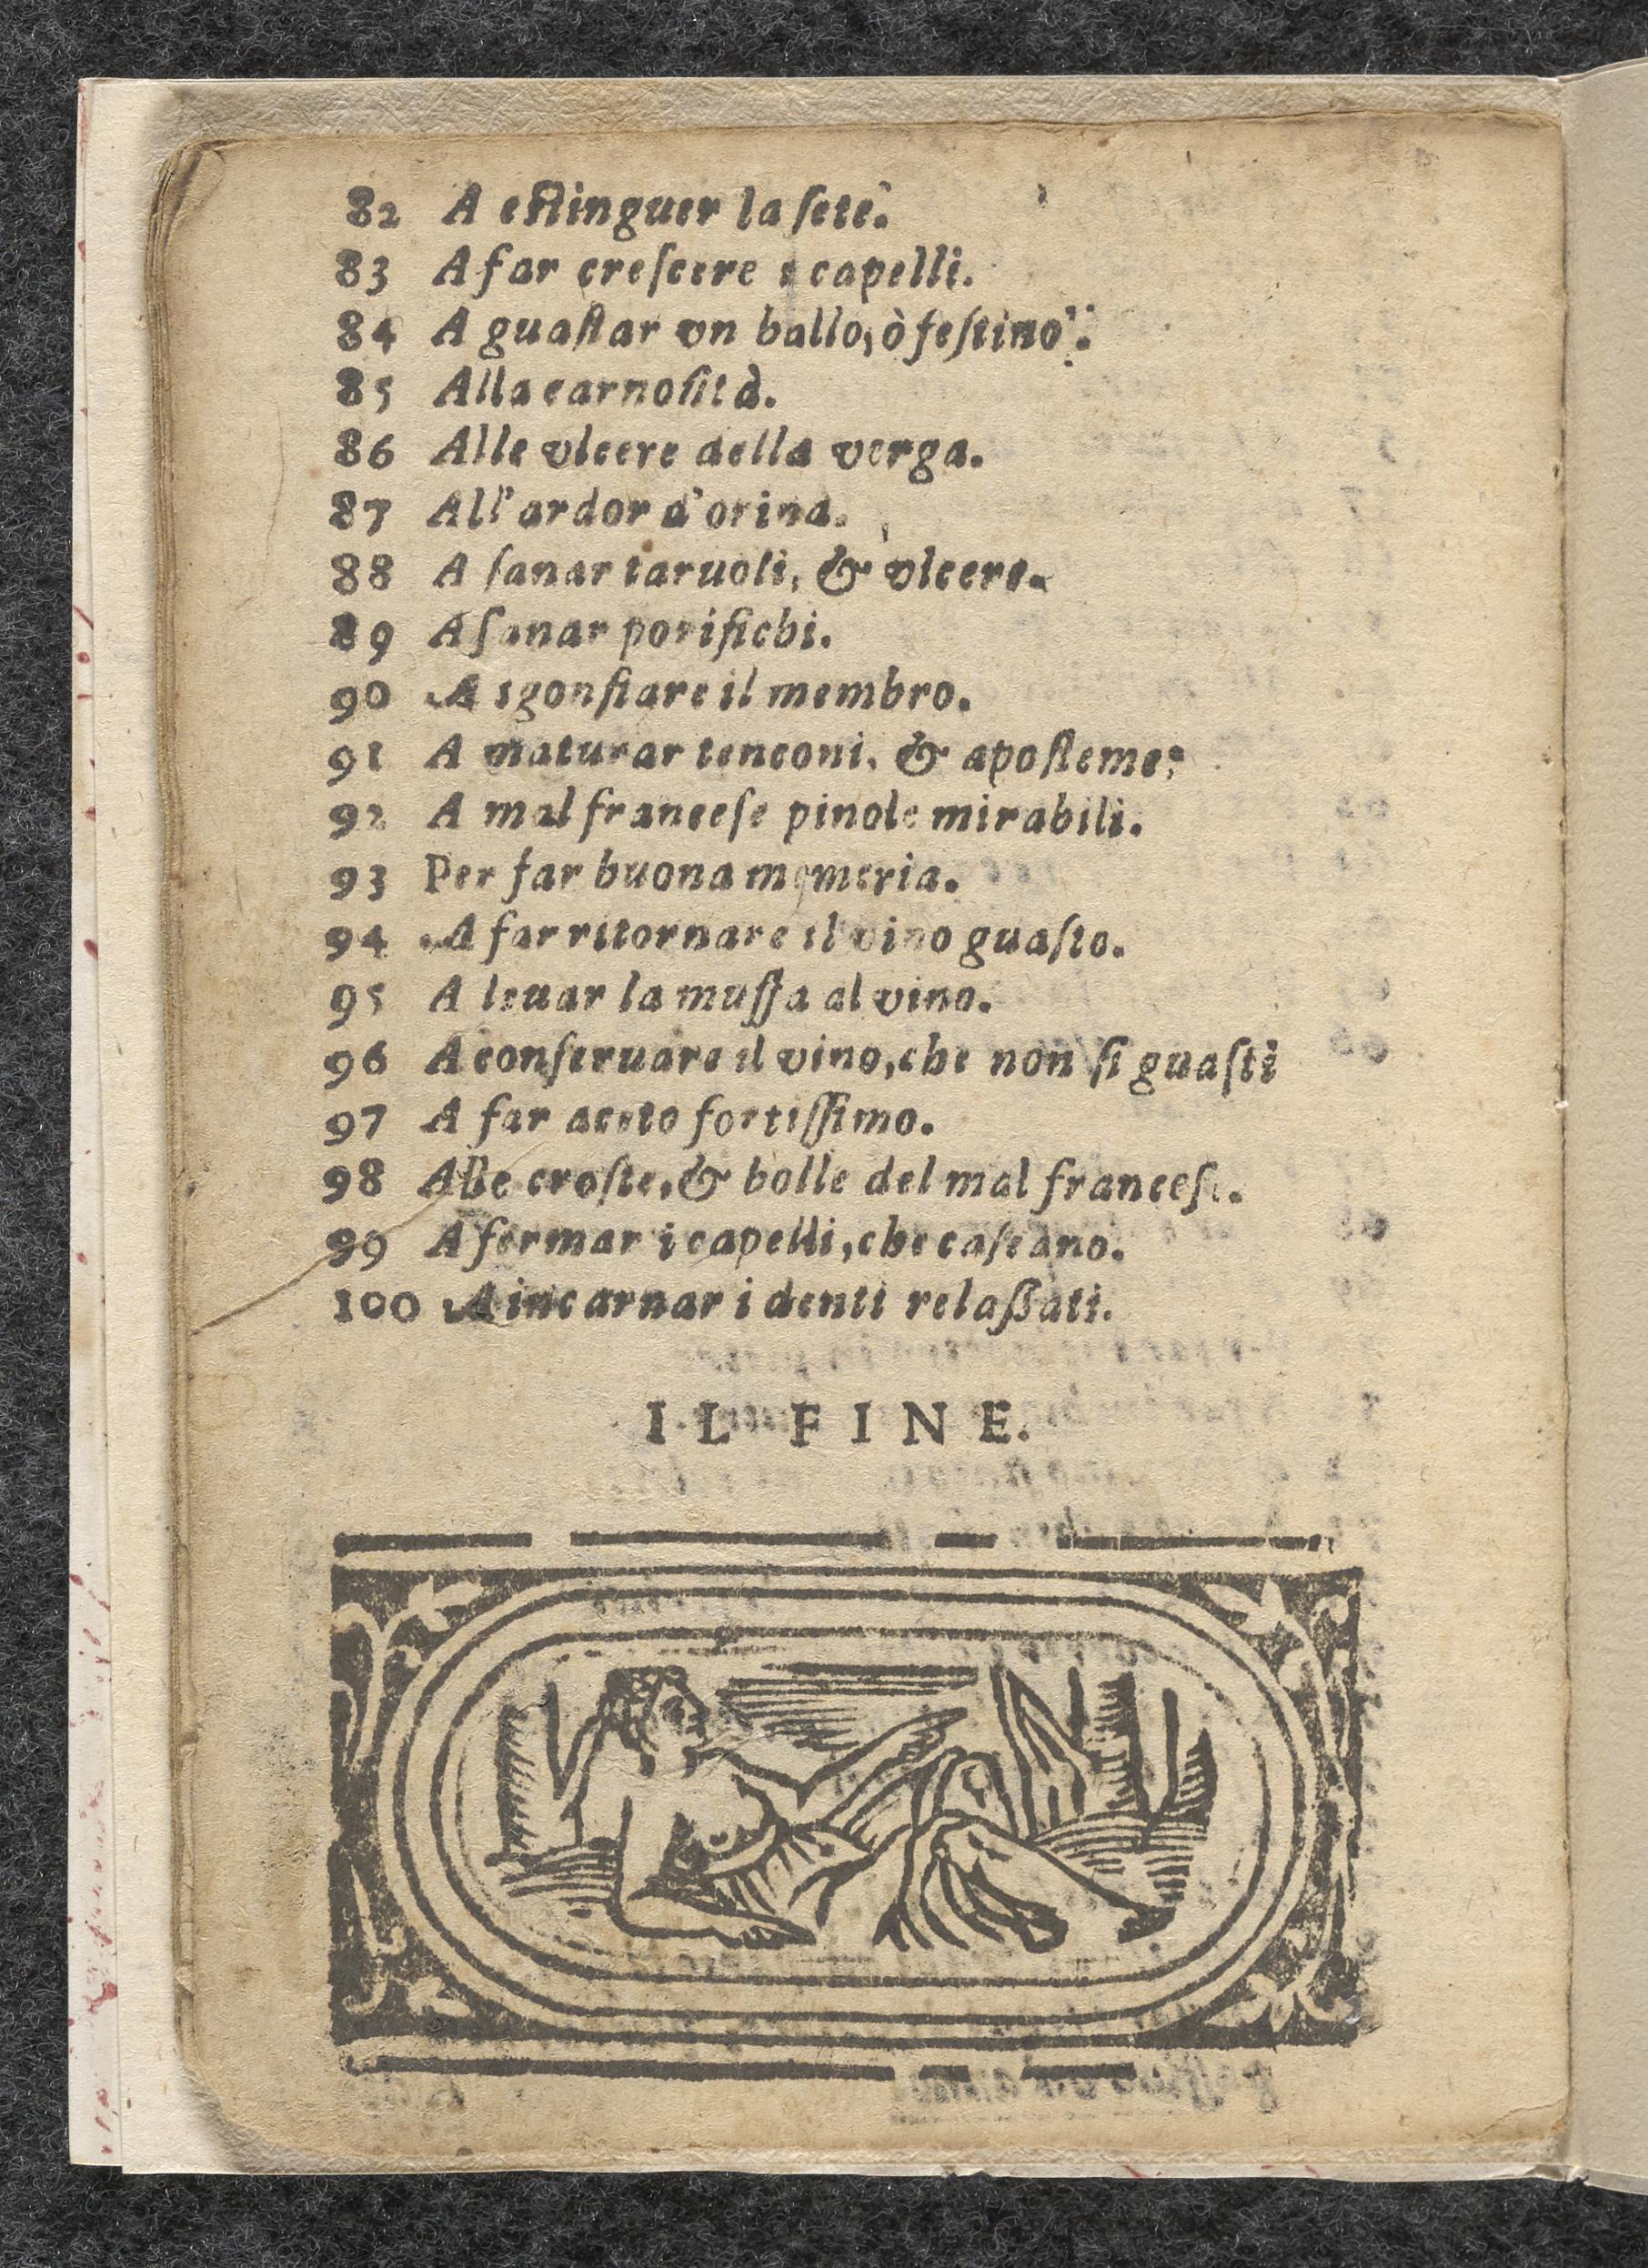 82 A eſtinguer la ſete.
83 A far creſcere i capelli.
84 A guaſtar vn ballo, ò feſtino.
85 Alla carnoſità.
86 Alle vlcere della verga.
87 All'ardor d'orina.
88 A ſanar taruoli, & vlcere.
89 A ſanar porifichi.
90 A sgonfiare il membro.
91 A maturar tenconi, & apoſteme.
92 A mal franceſe pinole mirabili.
93 Per far buona memeria.
94 A far ritornare il vino guaſto.
95 A leuar la muffa al vino.
96 A conſeruare il vino, che non ſi guaſti
97 A far aceto fortiſſimo.
98 Alle croſte, & bolle del mal franceſe.
99 A fermar i capelli, che caſcano.
100 A incarnar i denti relaſſati.
IL FINE.